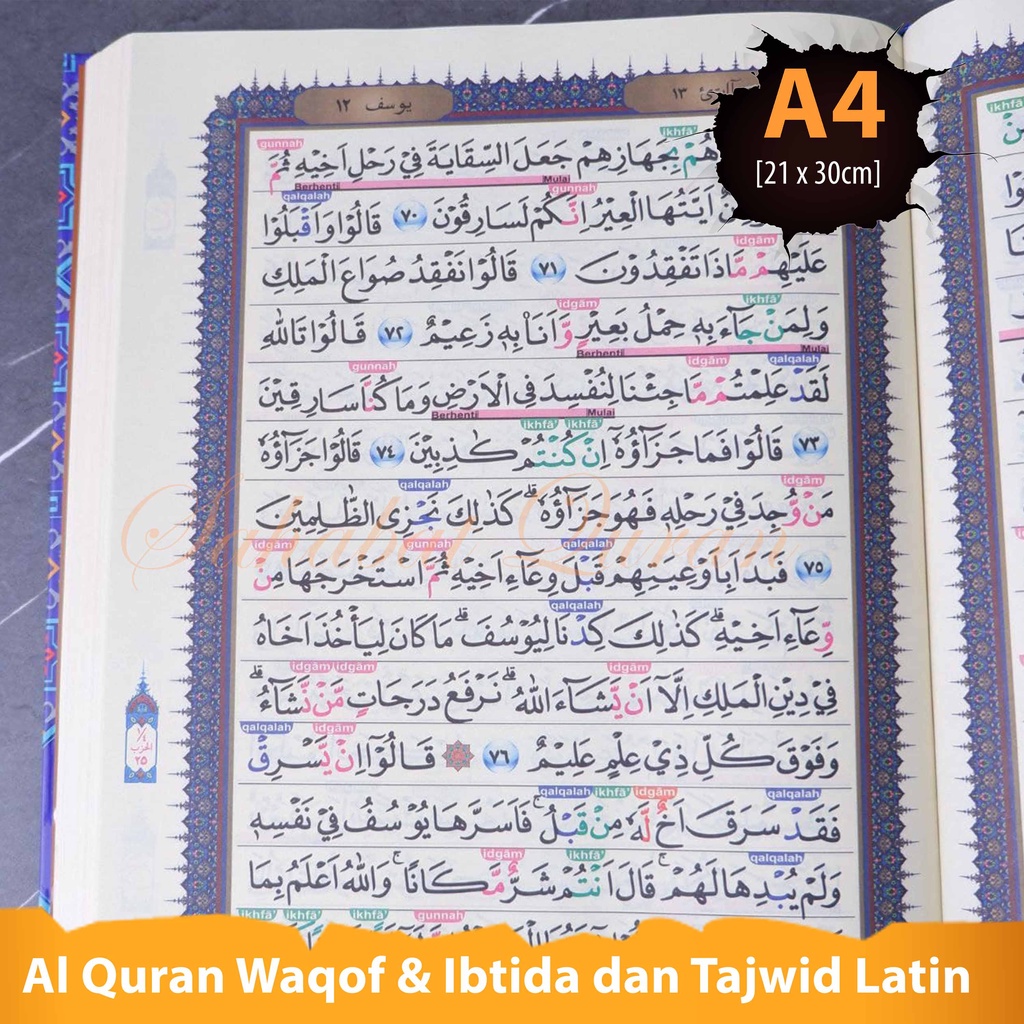 A4
[21 x 30cm]
يوسف ١٢
١٣
gunnah ikhfā'
هُمْ بِجَهَازِهِمْ جَعَلَ السِّقَايَةَ فِيْ رَحْلِ اَخِيْهِ ثُمَّ
Berhenti Mulai
qalqalah gunnah
اَيَّتُهَا الْعِيْرُ اِنَّكُمْ لَسَارِقُوْنَ ٧٠ قَالُوْا وَاَقْبَلُوْا
idgām
عَلَيْهِمْ مَّاذَا تَفْقِدُوْنَ ٧١ قَالُوْا نَفْقِدُ صُوَاعَ الْمَلِكِ
idgām ikhfā'
وَلِمَنْ جَاۤءَ بِهٖ حِمْلُ بَعِيْرٍ وَّاَنَا۠ بِهٖ زَعِيْمٌ ٧٢ قَالُوْا تَاللّٰهِ
Berhenti Mulai
gunnah idgām qalqalah
لَقَدْ عَلِمْتُمْ مَّا جِئْنَا لِنُفْسِدَ فِى الْاَرْضِ وَمَا كُنَّا سَارِقِيْنَ
Berhenti Mulai
ikhfā' ikhfā'
٧٣ قَالُوْا فَمَا جَزَاۤؤُهٗٓ اِنْ كُنْتُمْ كٰذِبِيْنَ ٧٤ قَالُوْا جَزَاۤؤُهٗ
qalqalah idgām
مَنْ وُّجِدَ فِيْ رَحْلِهٖ فَهُوَ جَزَاۤؤُهٗ ۗ كَذٰلِكَ نَجْزِى الظّٰلِمِيْنَ
Sahabat Quran
idgām gunnah qalqalah
٧٥ فَبَدَاَ بِاَوْعِيَتِهِمْ قَبْلَ وِعَاۤءِ اَخِيْهِ ثُمَّ اسْتَخْرَجَهَا مِنْ
qalqalah
وِّعَاۤءِ اَخِيْهِ ۗ كَذٰلِكَ كِدْنَا لِيُوْسُفَ ۗ مَا كَانَ لِيَأْخُذَ اَخَاهُ
idgām idgām idgām
فِيْ دِيْنِ الْمَلِكِ اِلَّآ اَنْ يَّشَاۤءَ اللّٰهُ ۗ نَرْفَعُ دَرَجَاتٍ مَّنْ نَّشَاۤءُ ۗ
qalqalah idgām
وَفَوْقَ كُلِّ ذِيْ عِلْمٍ عَلِيْمٌ ٧٦ قَالُوْٓا اِنْ يَّسْرِقْ
qalqalah ikhfā' idgām
فَقَدْ سَرَقَ اَخٌ لَّهٗ مِنْ قَبْلُ ۚ فَاَسَرَّهَا يُوْسُفُ فِيْ نَفْسِهٖ
idgām ikhfā' qalqalah
وَلَمْ يُبْدِهَا لَهُمْ ۚ قَالَ اَنْتُمْ شَرٌّ مَّكَانًا ۚ وَاللّٰهُ اَعْلَمُ بِمَا
ikhfā' ikhfā' ikhfā' gunnah
١/٤
الحزب
٢٥
ikhfā'
idgām
Al Quran Waqof & Ibtida dan Tajwid Latin